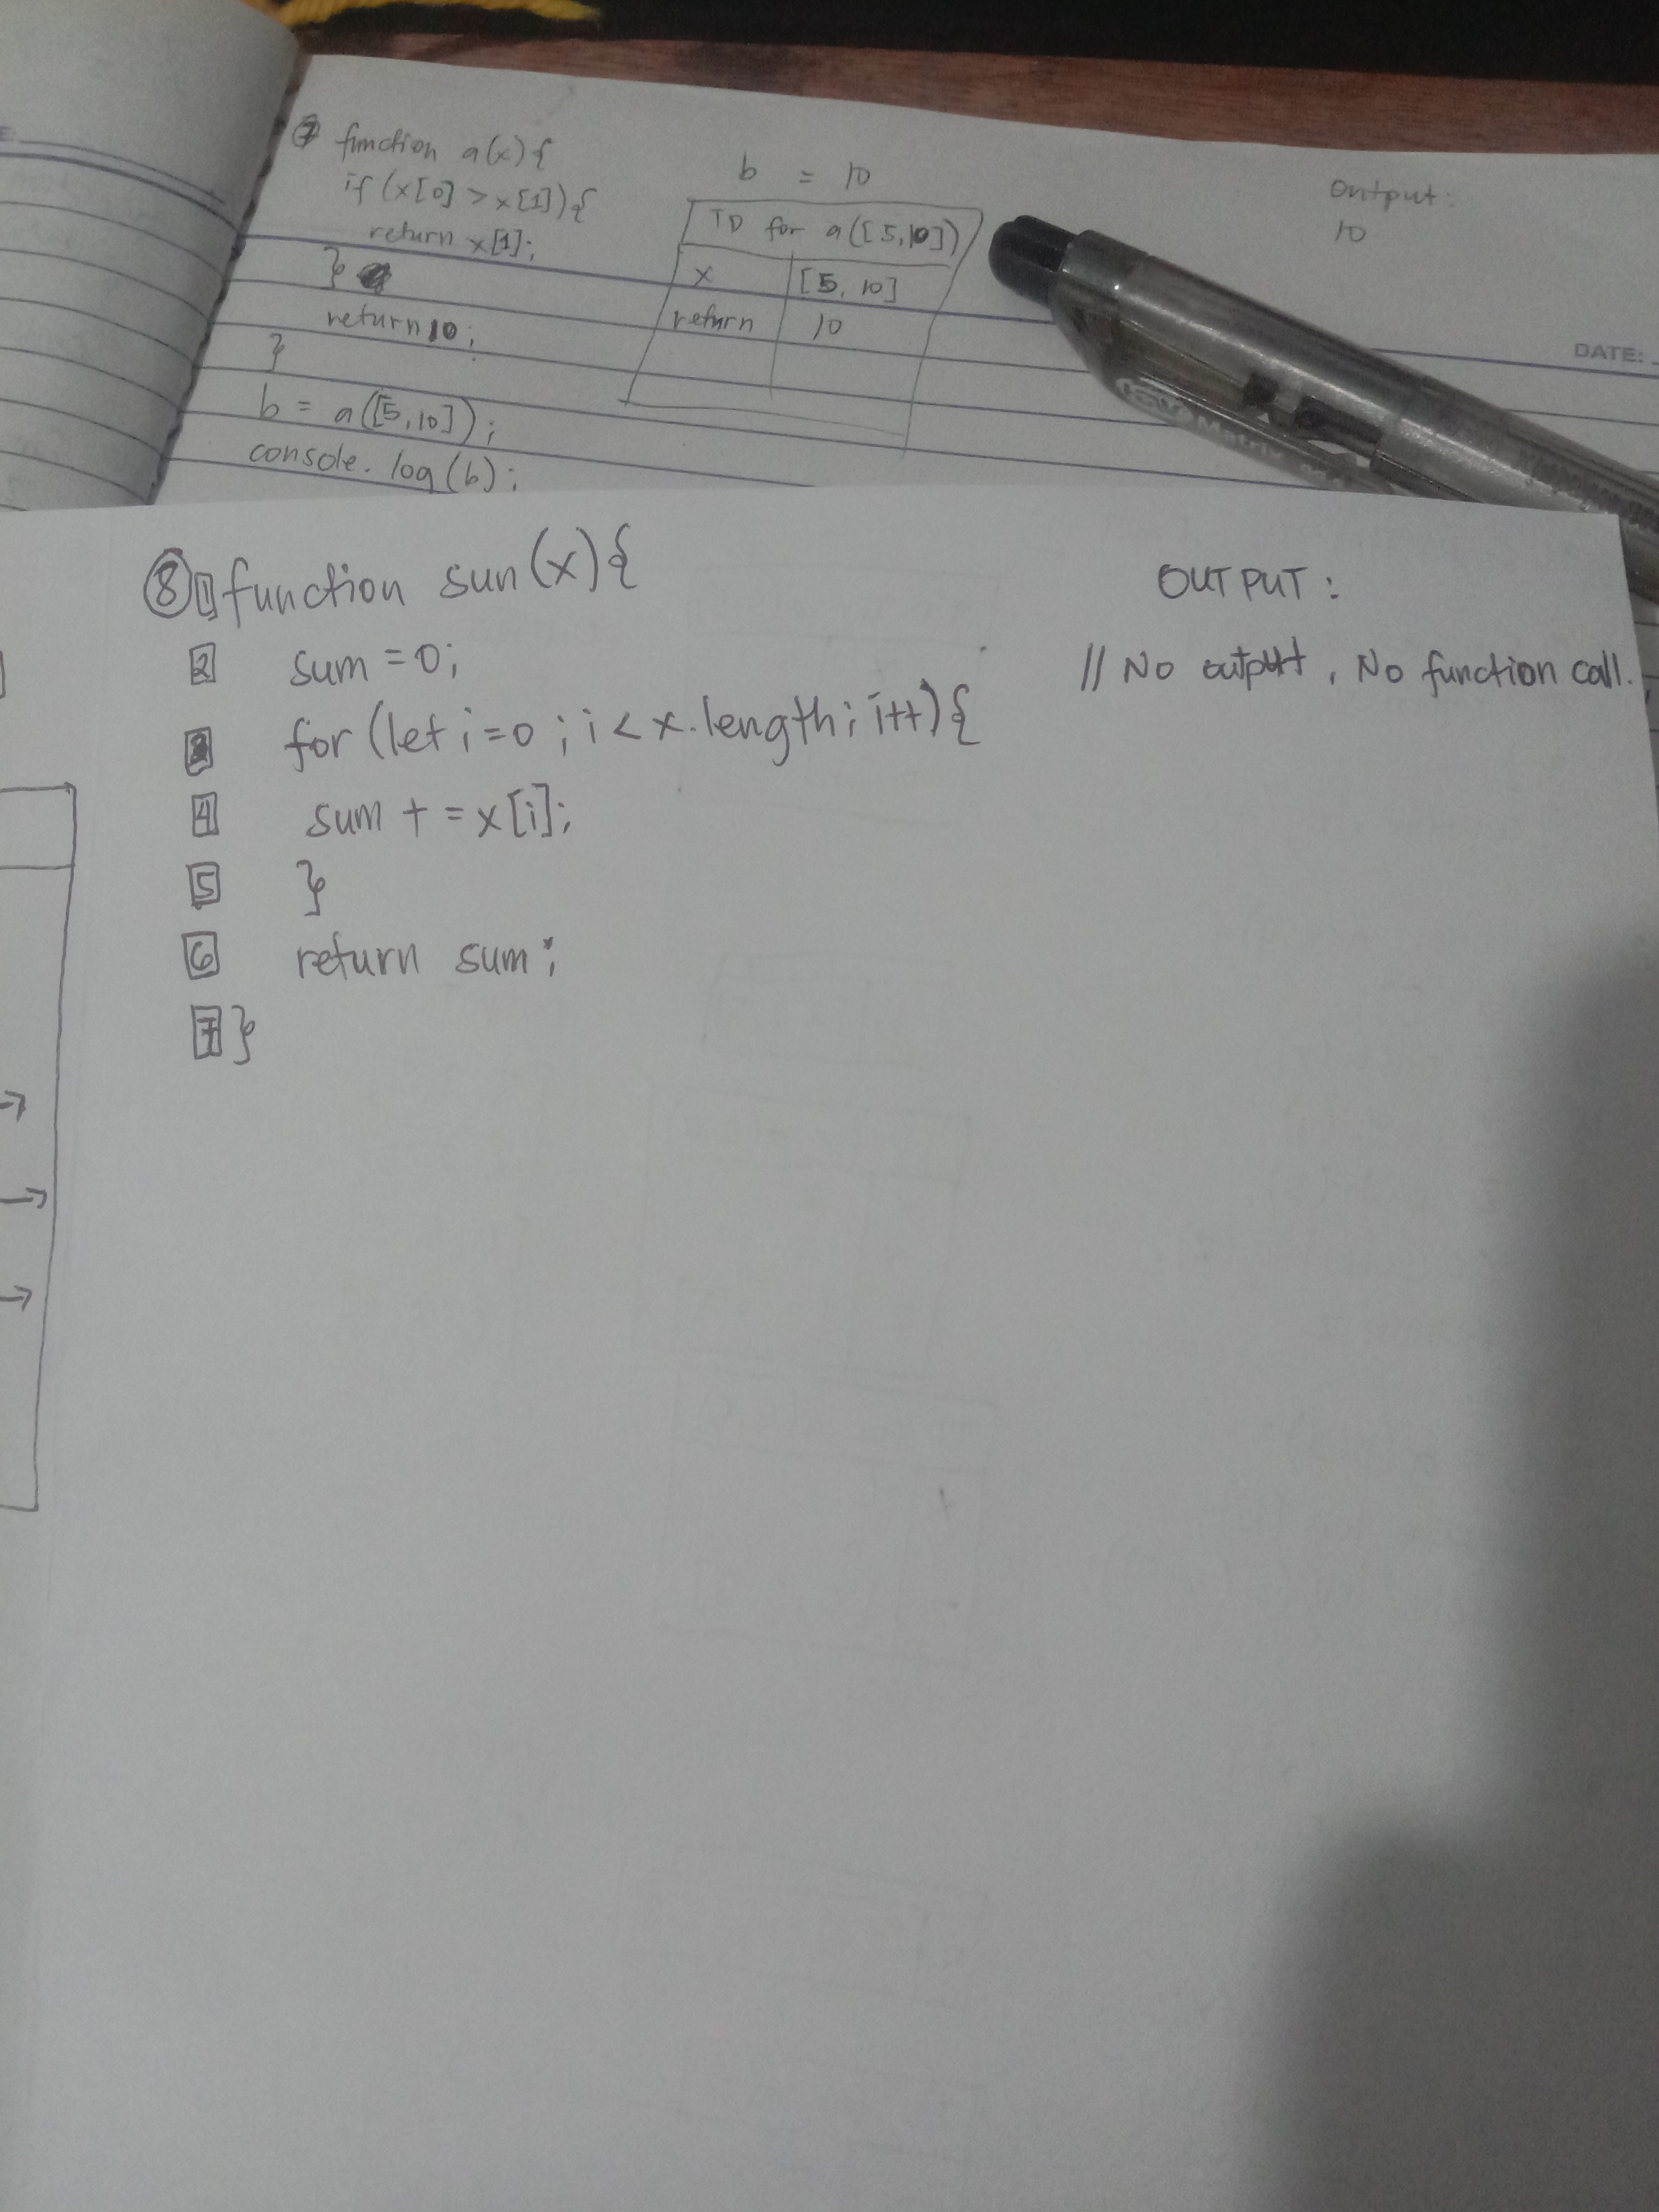 7 function a(x){
if (x[0] > x[1]){
return x[1];
}
return 10;
}
b = a([5,10]);
console.log(b);
b = 10
TD for a([5,10])
x [5, 10]
return 10
Output:
10
DATE:
Matrix
8 1 function sun(x){
2 sum = 0;
3 for (let i=0; i < x.length; i++){
4 sum += x[i];
5 }
6 return sum;
7 }
OUTPUT:
// No output, No function call.